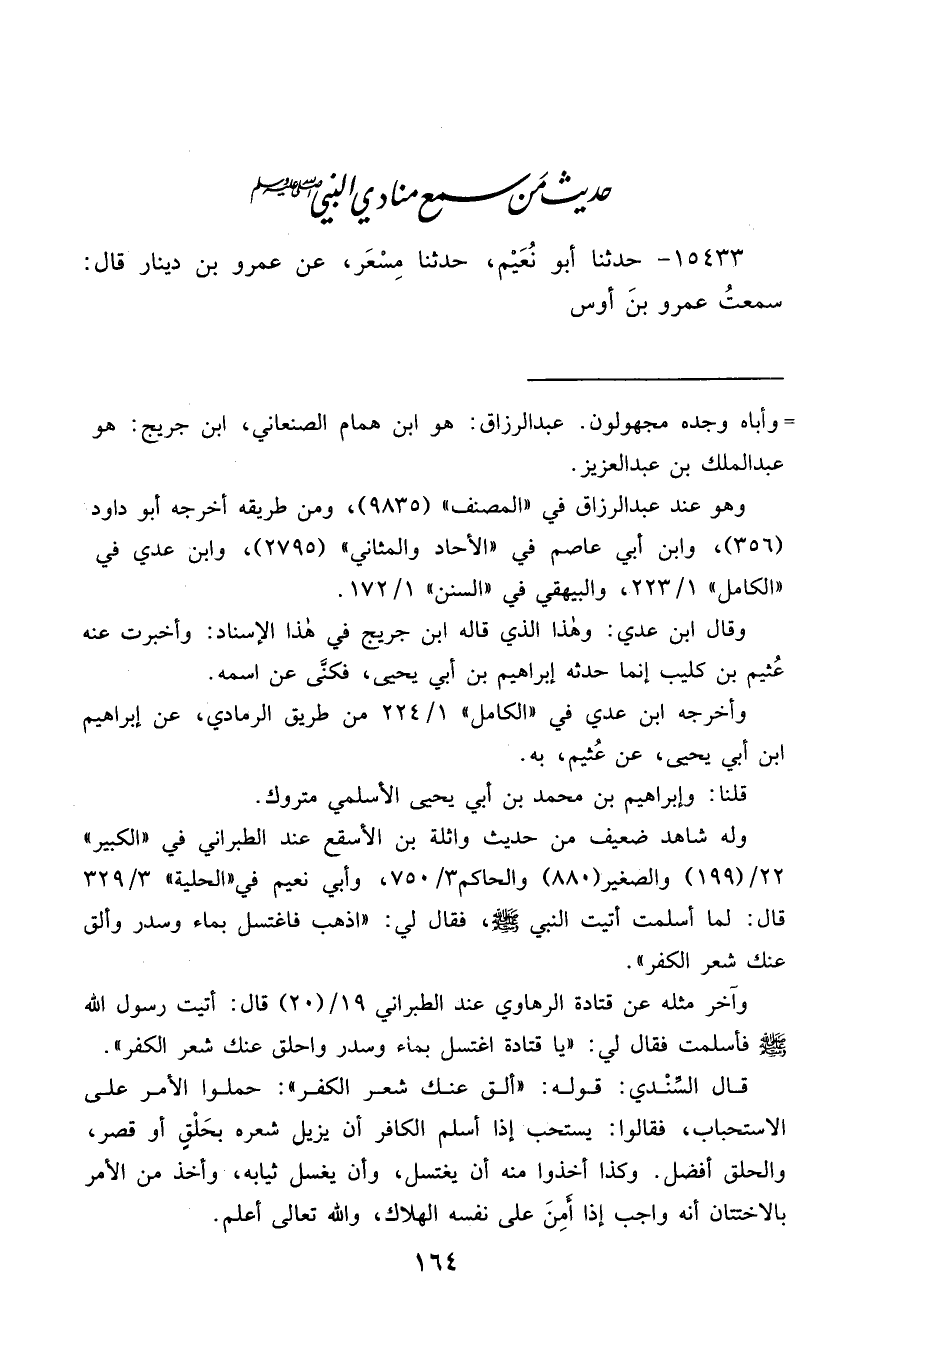 حديث مَن سمع منادي النبي ﷺ
١٥٤٣٣- حدثنا أبو نُعَيْم، حدثنا مِسْعَر، عن عمرو بن دينار قال:
سمعتُ عمرو بنَ أوس
= وأباه وجده مجهولون. عبدالرزاق: هو ابن همام الصنعاني، ابن جريج: هو
عبدالملك بن عبدالعزيز.
وهو عند عبدالرزاق في «المصنف» (٩٨٣٥)، ومن طريقه أخرجه أبو داود
(٣٥٦)، وابن أبي عاصم في «الأحاد والمثاني» (٢٧٩٥)، وابن عدي في
«الكامل» ٢٢٣/١، والبيهقي في «السنن» ١٧٢/١.
وقال ابن عدي: وهٰذا الذي قاله ابن جريج في هٰذا الإسناد: وأخبرت عنه
عُثيم بن كليب إنما حدثه إبراهيم بن أبي يحيى، فكنَّى عن اسمه.
وأخرجه ابن عدي في «الكامل» ٢٢٤/١ من طريق الرمادي، عن إبراهيم
ابن أبي يحيى، عن عُثيم، به.
قلنا: وإبراهيم بن محمد بن أبي يحيى الأسلمي متروك.
وله شاهد ضعيف من حديث واثلة بن الأسقع عند الطبراني في «الكبير»
٢٢/(١٩٩) والصغير(٨٨٠) والحاكم٧٥٠/٣، وأبي نعيم في«الحلية» ٣٢٩/٣
قال: لما أسلمت أتيت النبي ﷺ، فقال لي: «اذهب فاغتسل بماء وسدر وألق
عنك شعر الكفر».
وآخر مثله عن قتادة الرهاوي عند الطبراني ١٩/(٢٠) قال: أتيت رسول الله
ﷺ فأسلمت فقال لي: «يا قتادة اغتسل بماء وسدر واحلق عنك شعر الكفر».
قال السِّنْدي: قوله: «ألق عنك شعر الكفر»: حملوا الأمر على
الاستحباب، فقالوا: يستحب إذا أسلم الكافر أن يزيل شعره بحَلْقٍ أو قصر،
والحلق أفضل. وكذا أخذوا منه أن يغتسل، وأن يغسل ثيابه، وأخذ من الأمر
بالاختتان أنه واجب إذا أَمِنَ على نفسه الهلاك، والله تعالى أعلم.
١٦٤